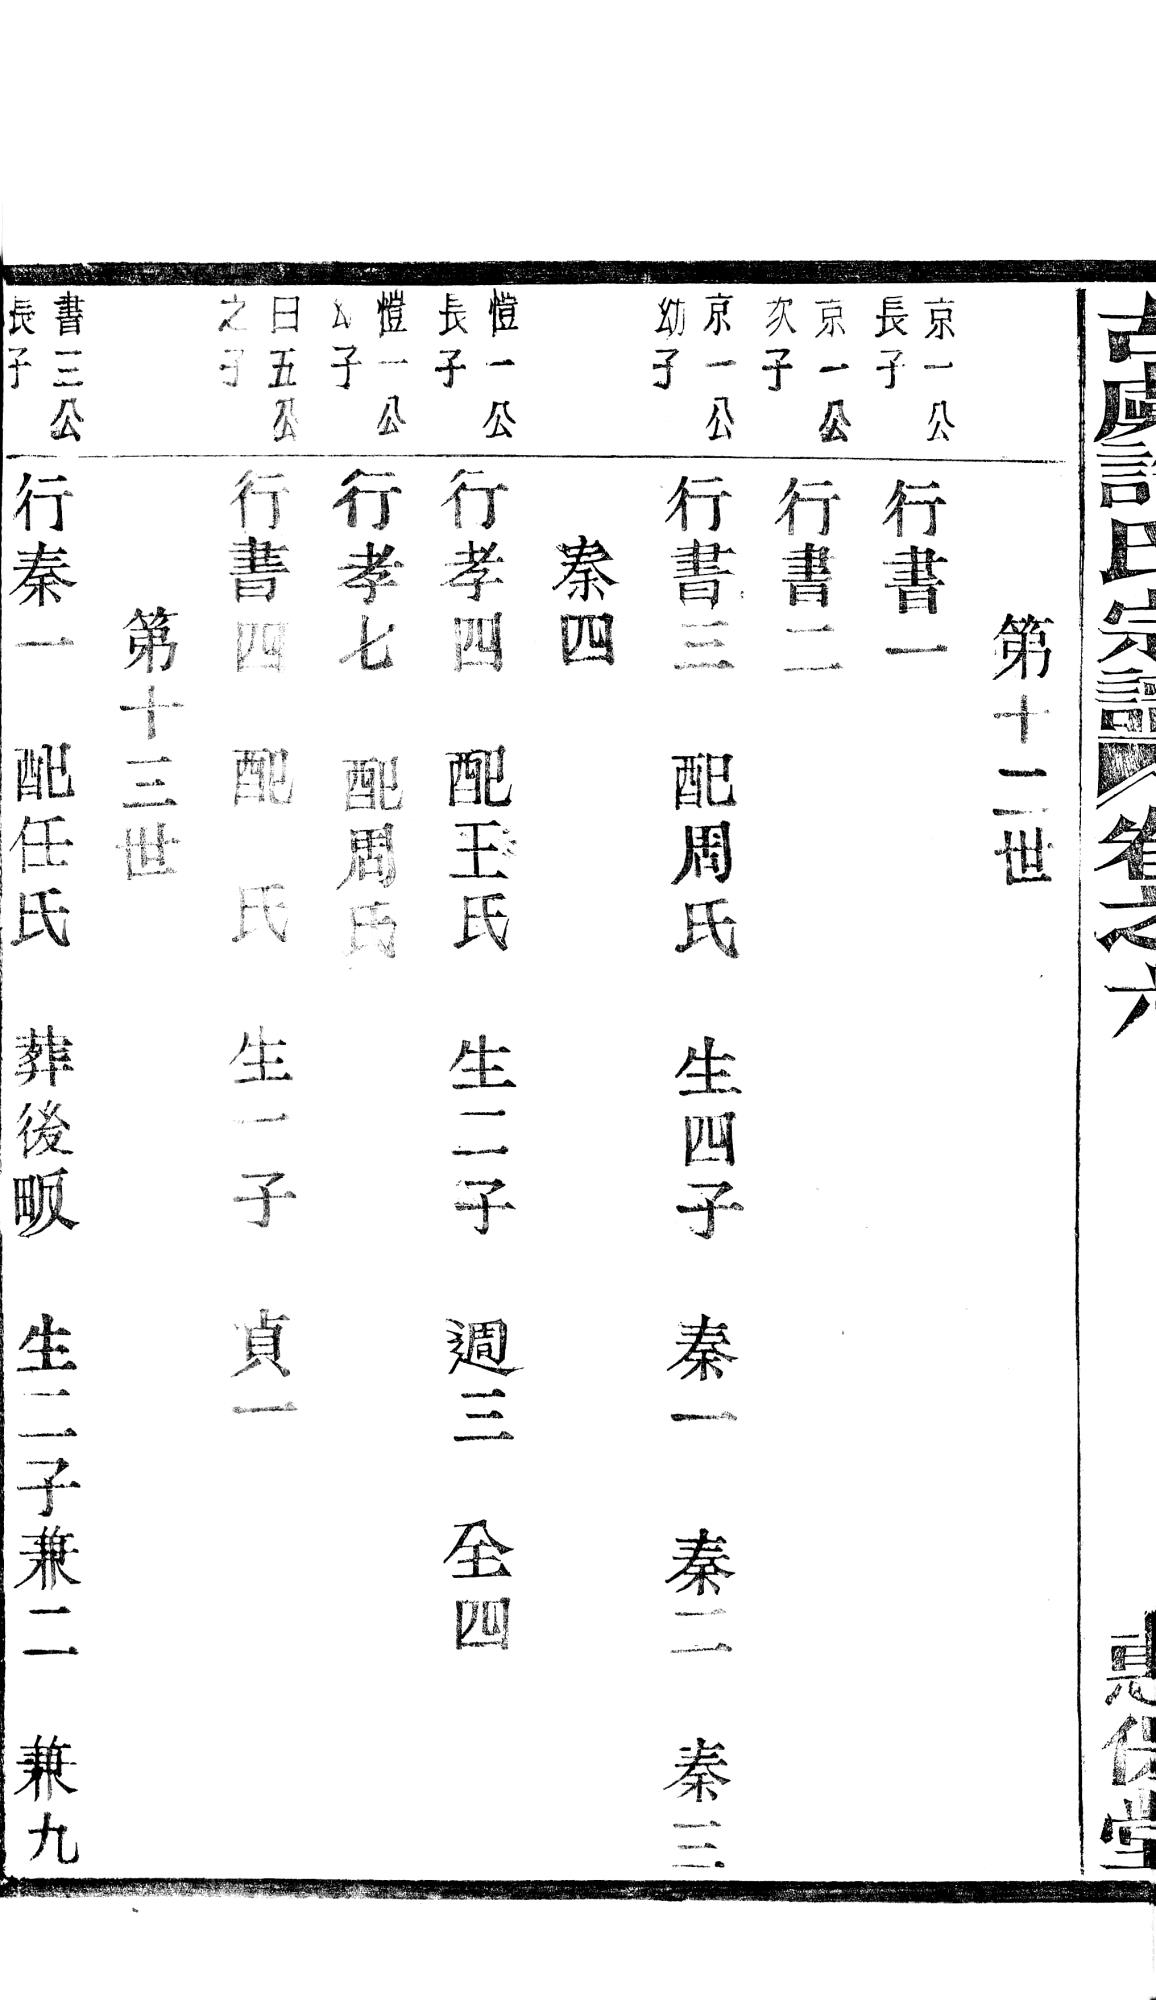 古虞許氏宗譜 卷之六
惠保堂
第十二世
京一公
長子
行書一
京一公
次子
行書二
京一公
幼子
行書三 配周氏 生四子 秦一 秦二 秦三
秦四
愷一公
長子
行孝四 配王氏 生二子 週三 全四
愷一公
幼子
行孝七 配周氏
曰五公
之子
行書四 配 氏 生一子 貞一
第十三世
書三公
長子
行秦一 配任氏 葬後畈 生二子兼二 兼九